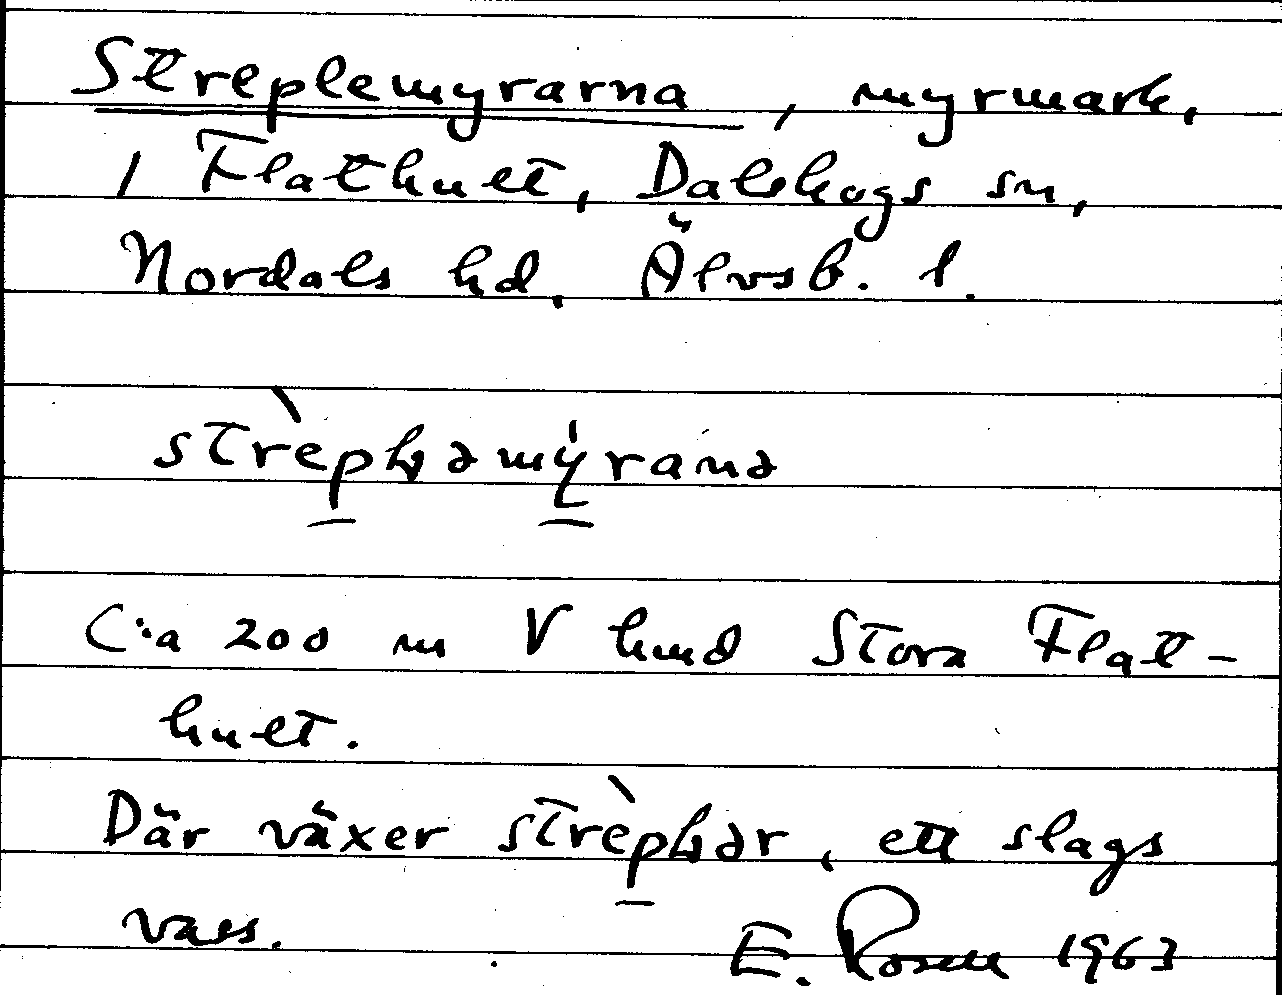 Streplemyrarna, myrmark,
i Flathult, Dalskogs sn,
Nordals hd. Älvsb. l.
C:a 200 m V hmd Stora Flat-
hult.
Där växer ett slags
vass. E. Rosell 1963